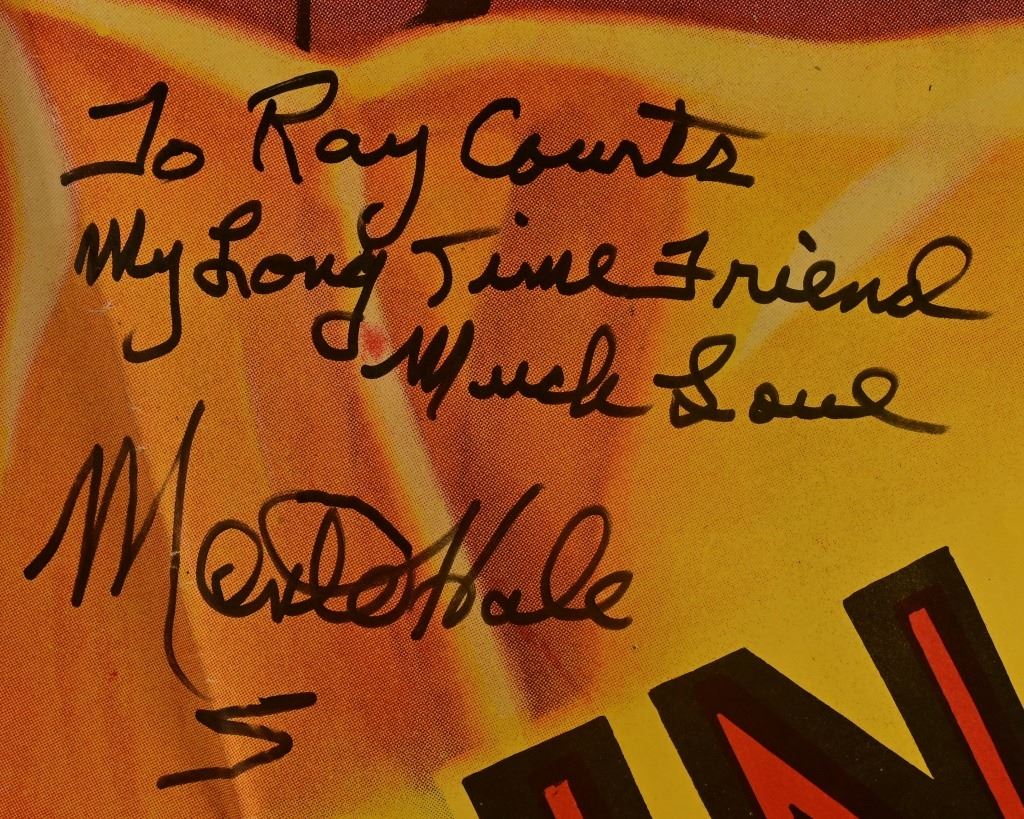 To Ray Courts
My Long Time Friend
Much Love
Monte Hale
IN